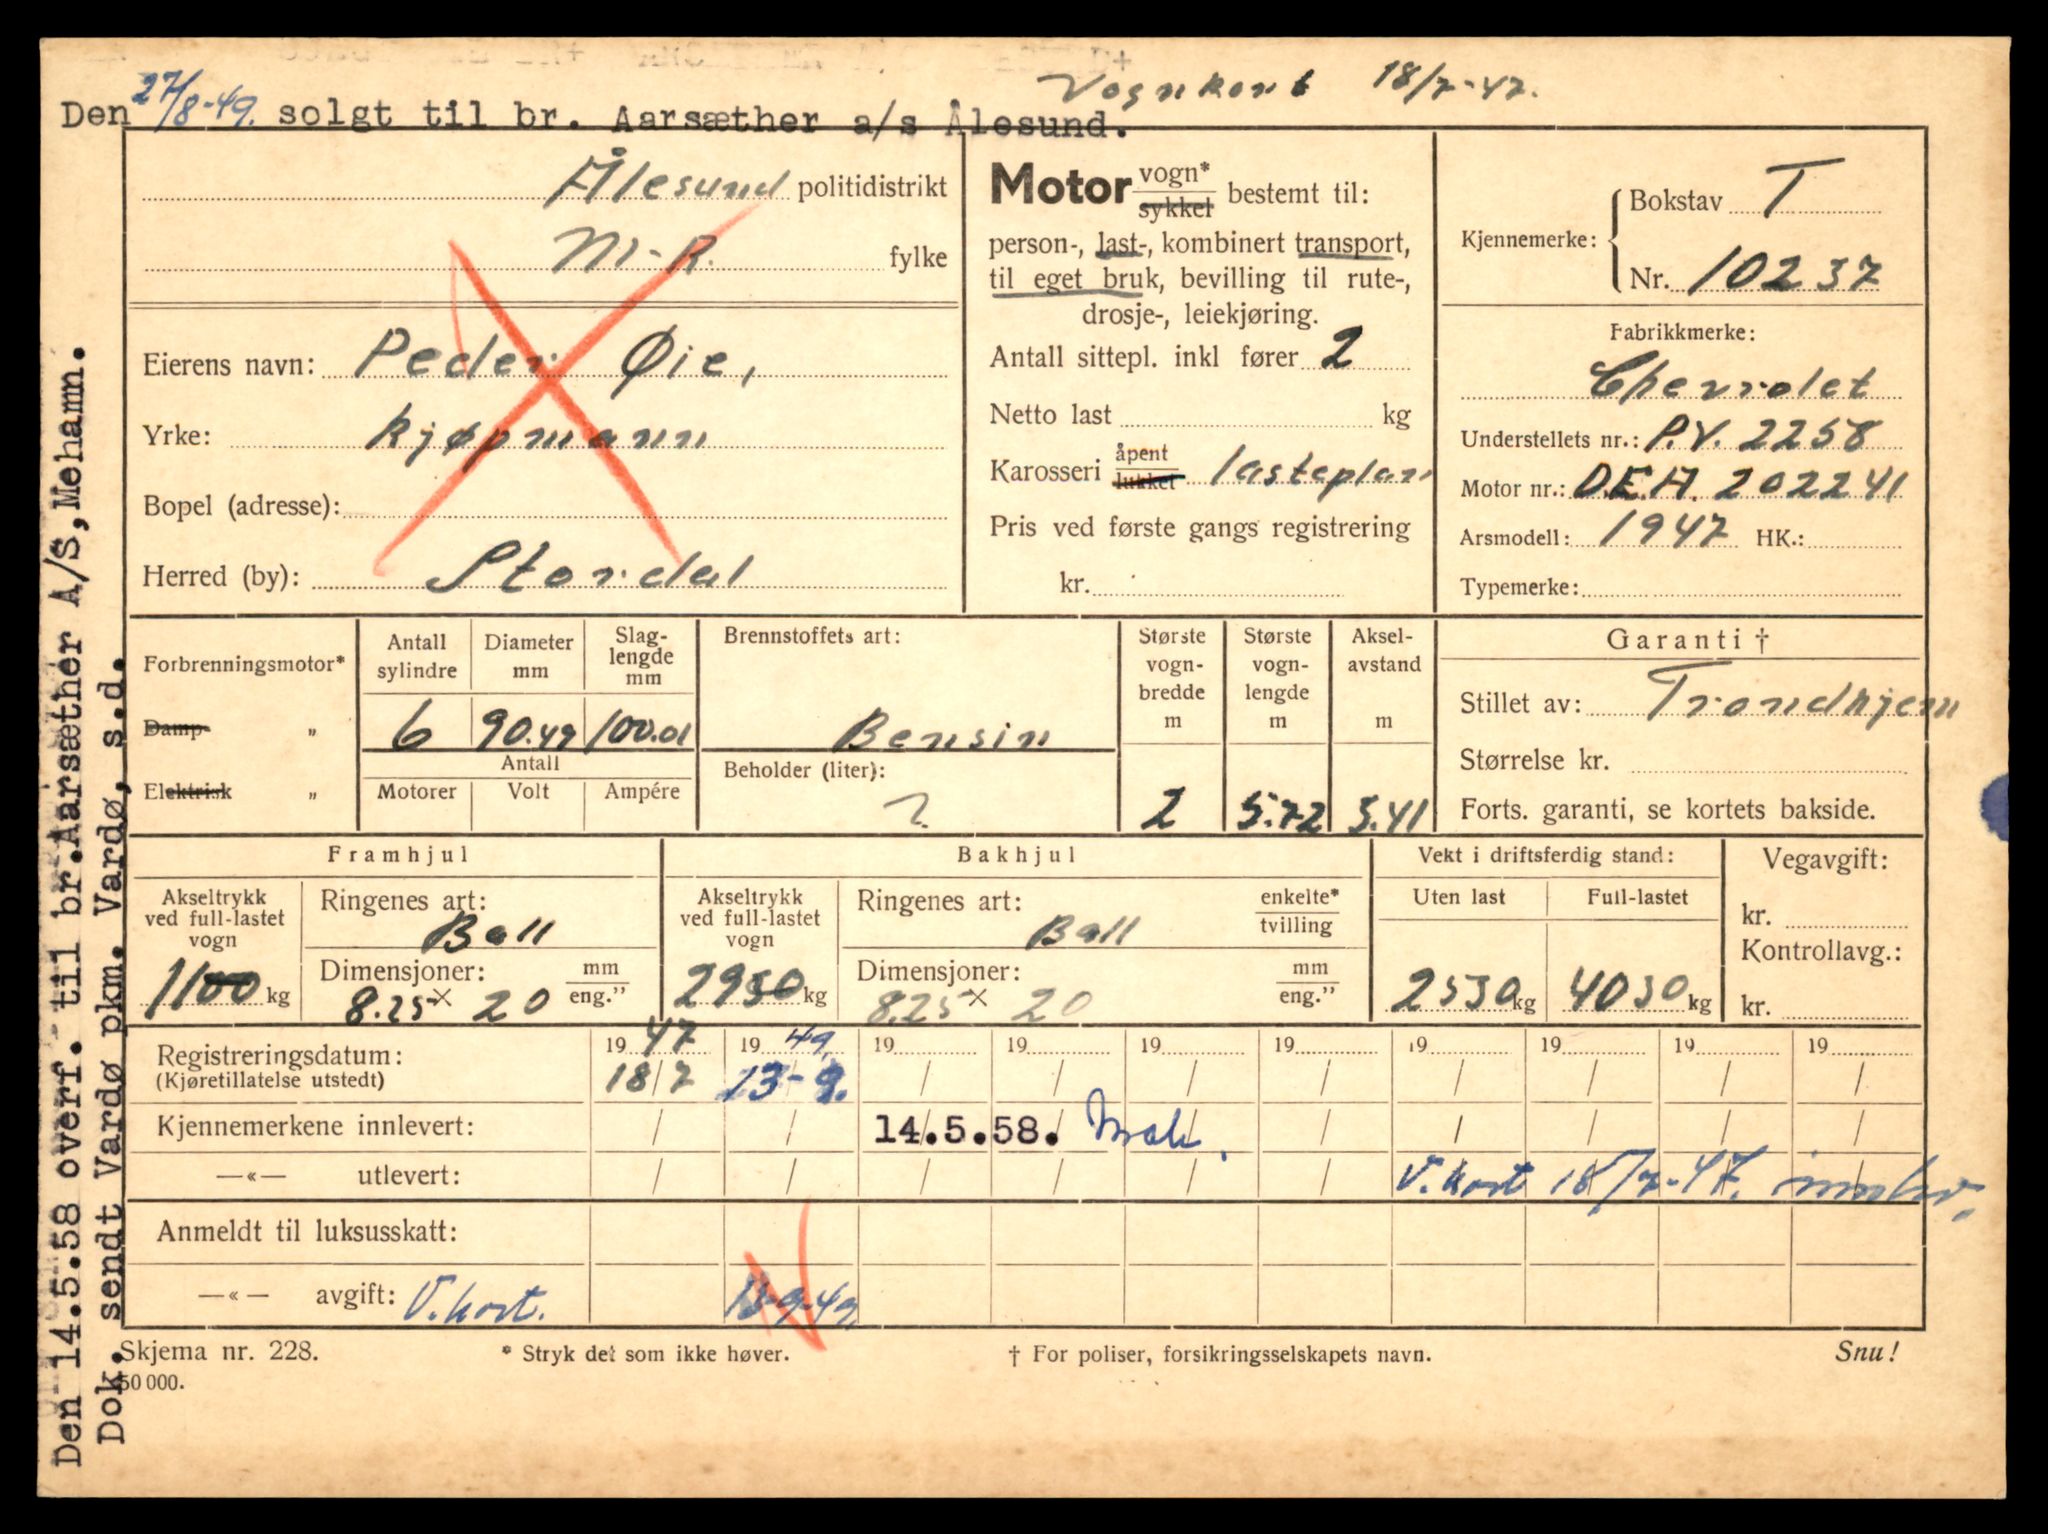 Vognkort 18/7-47.
Den 27/8-49. solgt til br. Aarsæther a/s Ålesund.
Ålesund politidistrikt
M-R. fylke
Eierens navn: Peder Øie,
Yrke: kjøpmann
Bopel (adresse):
Herred (by): Stordal
Motor vogn* sykkel bestemt til:
person-, last-, kombinert transport,
til eget bruk, bevilling til rute-,
drosje-, leiekjøring.
Antall sittepl. inkl fører 2
Netto last kg
Karosseri åpent lukket lasteplan
Pris ved første gangs registrering
kr.
Kjennemerke: Bokstav T
Nr. 10237
Fabrikkmerke:
Chevrolet
Understellets nr.: P.V. 2258
Motor nr.: D.E.A. 202241
Arsmodell: 1947 HK.:
Typemerke:
Forbrenningsmotor*
Damp- „
Elektrisk „
Antall sylindre Diameter mm Slag-lengde mm
6 90.49 100.01
Antall
Motorer Volt Ampére
Brennstoffets art:
Bensin
Beholder (liter):
?
Største vogn-bredde m
2
Største vogn-lengde m
5.72
Aksel-avstand m
3.41
Garanti †
Stillet av: Trondhjem
Størrelse kr.
Forts. garanti, se kortets bakside.
Framhjul
Akseltrykk ved full-lastet vogn
1100 kg
Ringenes art:
Ball
Dimensjoner: mm eng."
8.25 x 20
Bakhjul
Akseltrykk ved full-lastet vogn
2950 kg
Ringenes art: enkelte* tvilling
Ball
Dimensjoner: mm eng."
8.25 x 20
Vekt i driftsferdig stand:
Uten last Full-lastet
2530 kg 4030 kg
Vegavgift:
kr.
Kontrollavg.:
kr.
Registreringsdatum: 19 47 19 49. 19 19 19 19 19 19 19 19
(Kjøretillatelse utstedt) 18/7 13-9.
Kjennemerkene innlevert: 14.5.58.
—«— utlevert: V.kort 18/7-47. innlev.
Anmeldt til luksusskatt:
—«— avgift: V.kort. 13-9-49
Skjema nr. 228. * Stryk det som ikke høver. † For poliser, forsikringsselskapets navn. Snu!
50 000.
Den 14.5.58 overf. til br.Aarsæther A/S, Mehamn.
Dok. sendt Vardø pkm. Vardø, s.d.